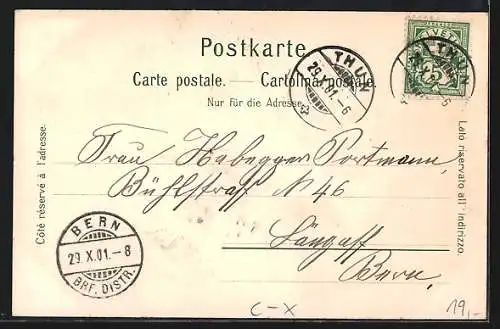 Postkarte.
Carte postale. — Cartolina postale.
Nur für die Adresse.
THUN
29.X.01.-6
HELVETIA
THUN
Côté réservé à l'adresse.
Lato riservato all' indirizzo.
Frau Habegger Portmann,
Bühlstrass No 46
Länggass
Bern.
BERN
29.X.01.-8
BRF. DISTR.
C-X
19,-